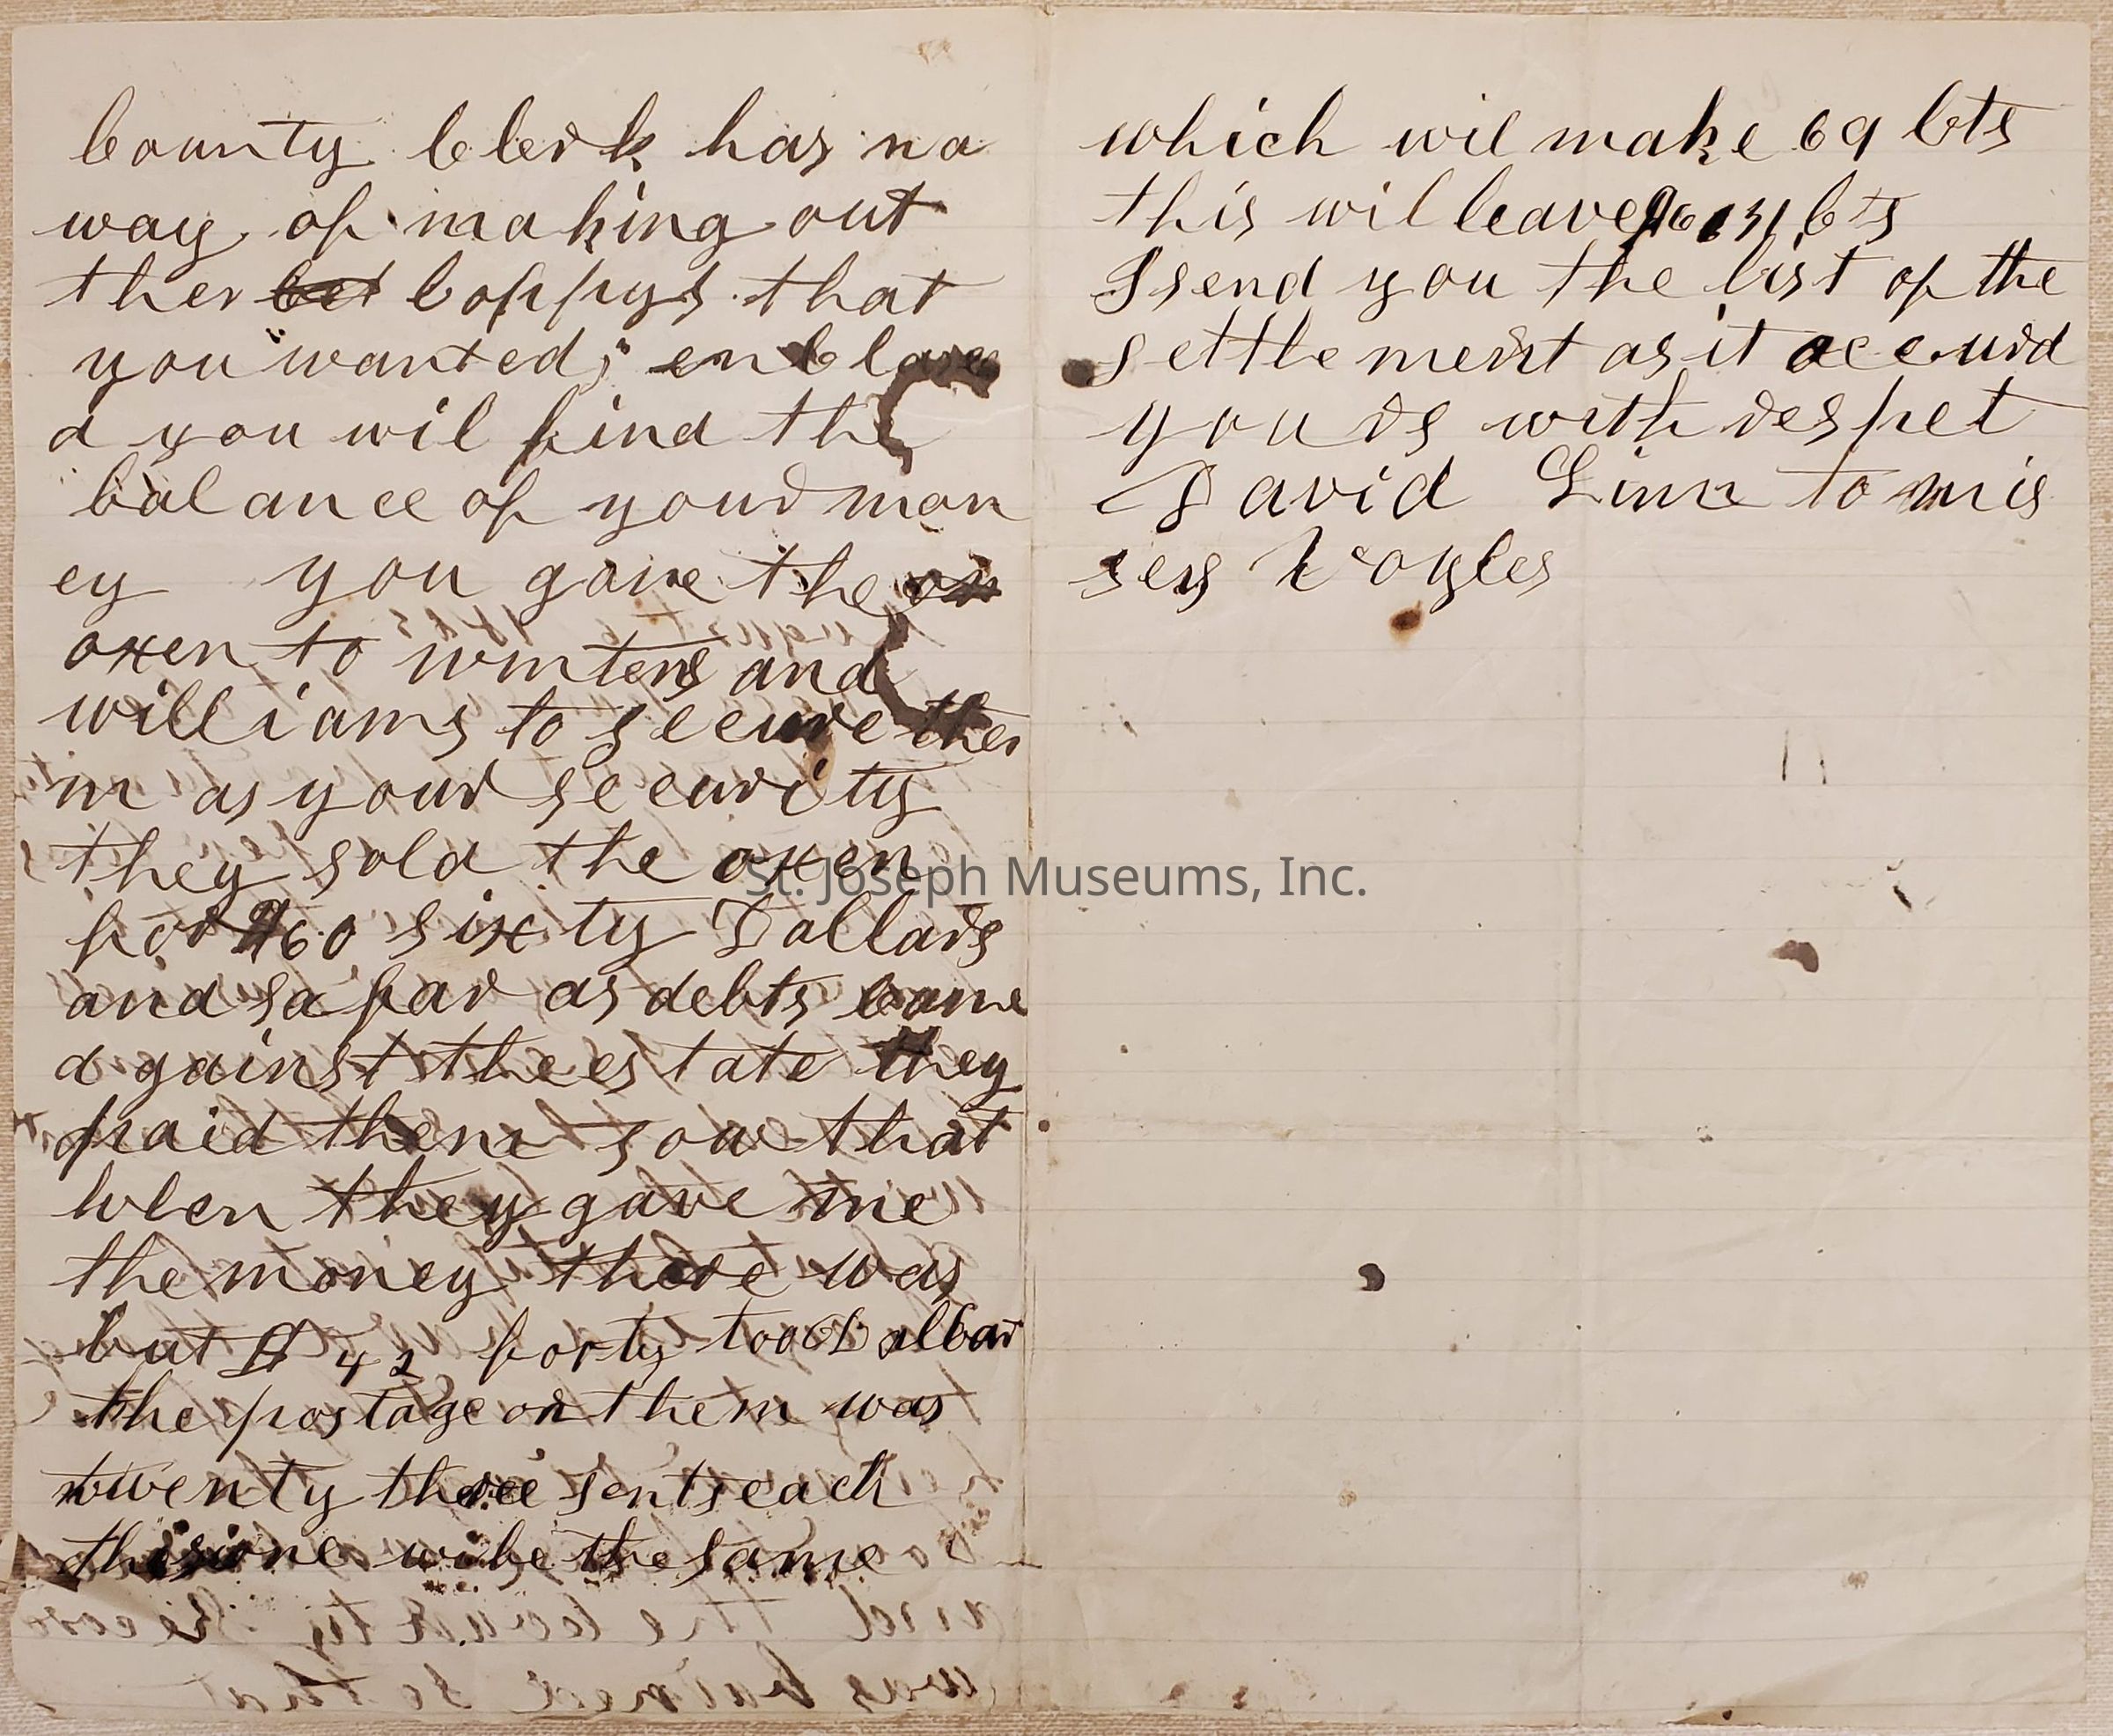 County Clerk has no
way of making out
ther Coppys that
you wanted; enclose
d you wil find the
balance of your mon
ey you gave the
oxen to wintens and
williams to secure the
m as your security
they sold the oxen
for $60 sixty Dollars
and so far as debts came
against the estate they
paid them sow that
when they gave me
the money there was
but $ 42 forty too Dollar
the postage on them was
twenty three sents each
this one wil be the same
which wil make 69 Cts
this wil leave 31 Cts
I send you the list of the
settlement as it occurd
yours with respet
David Linn to mis
ses Vogles
St. Joseph Museums, Inc.